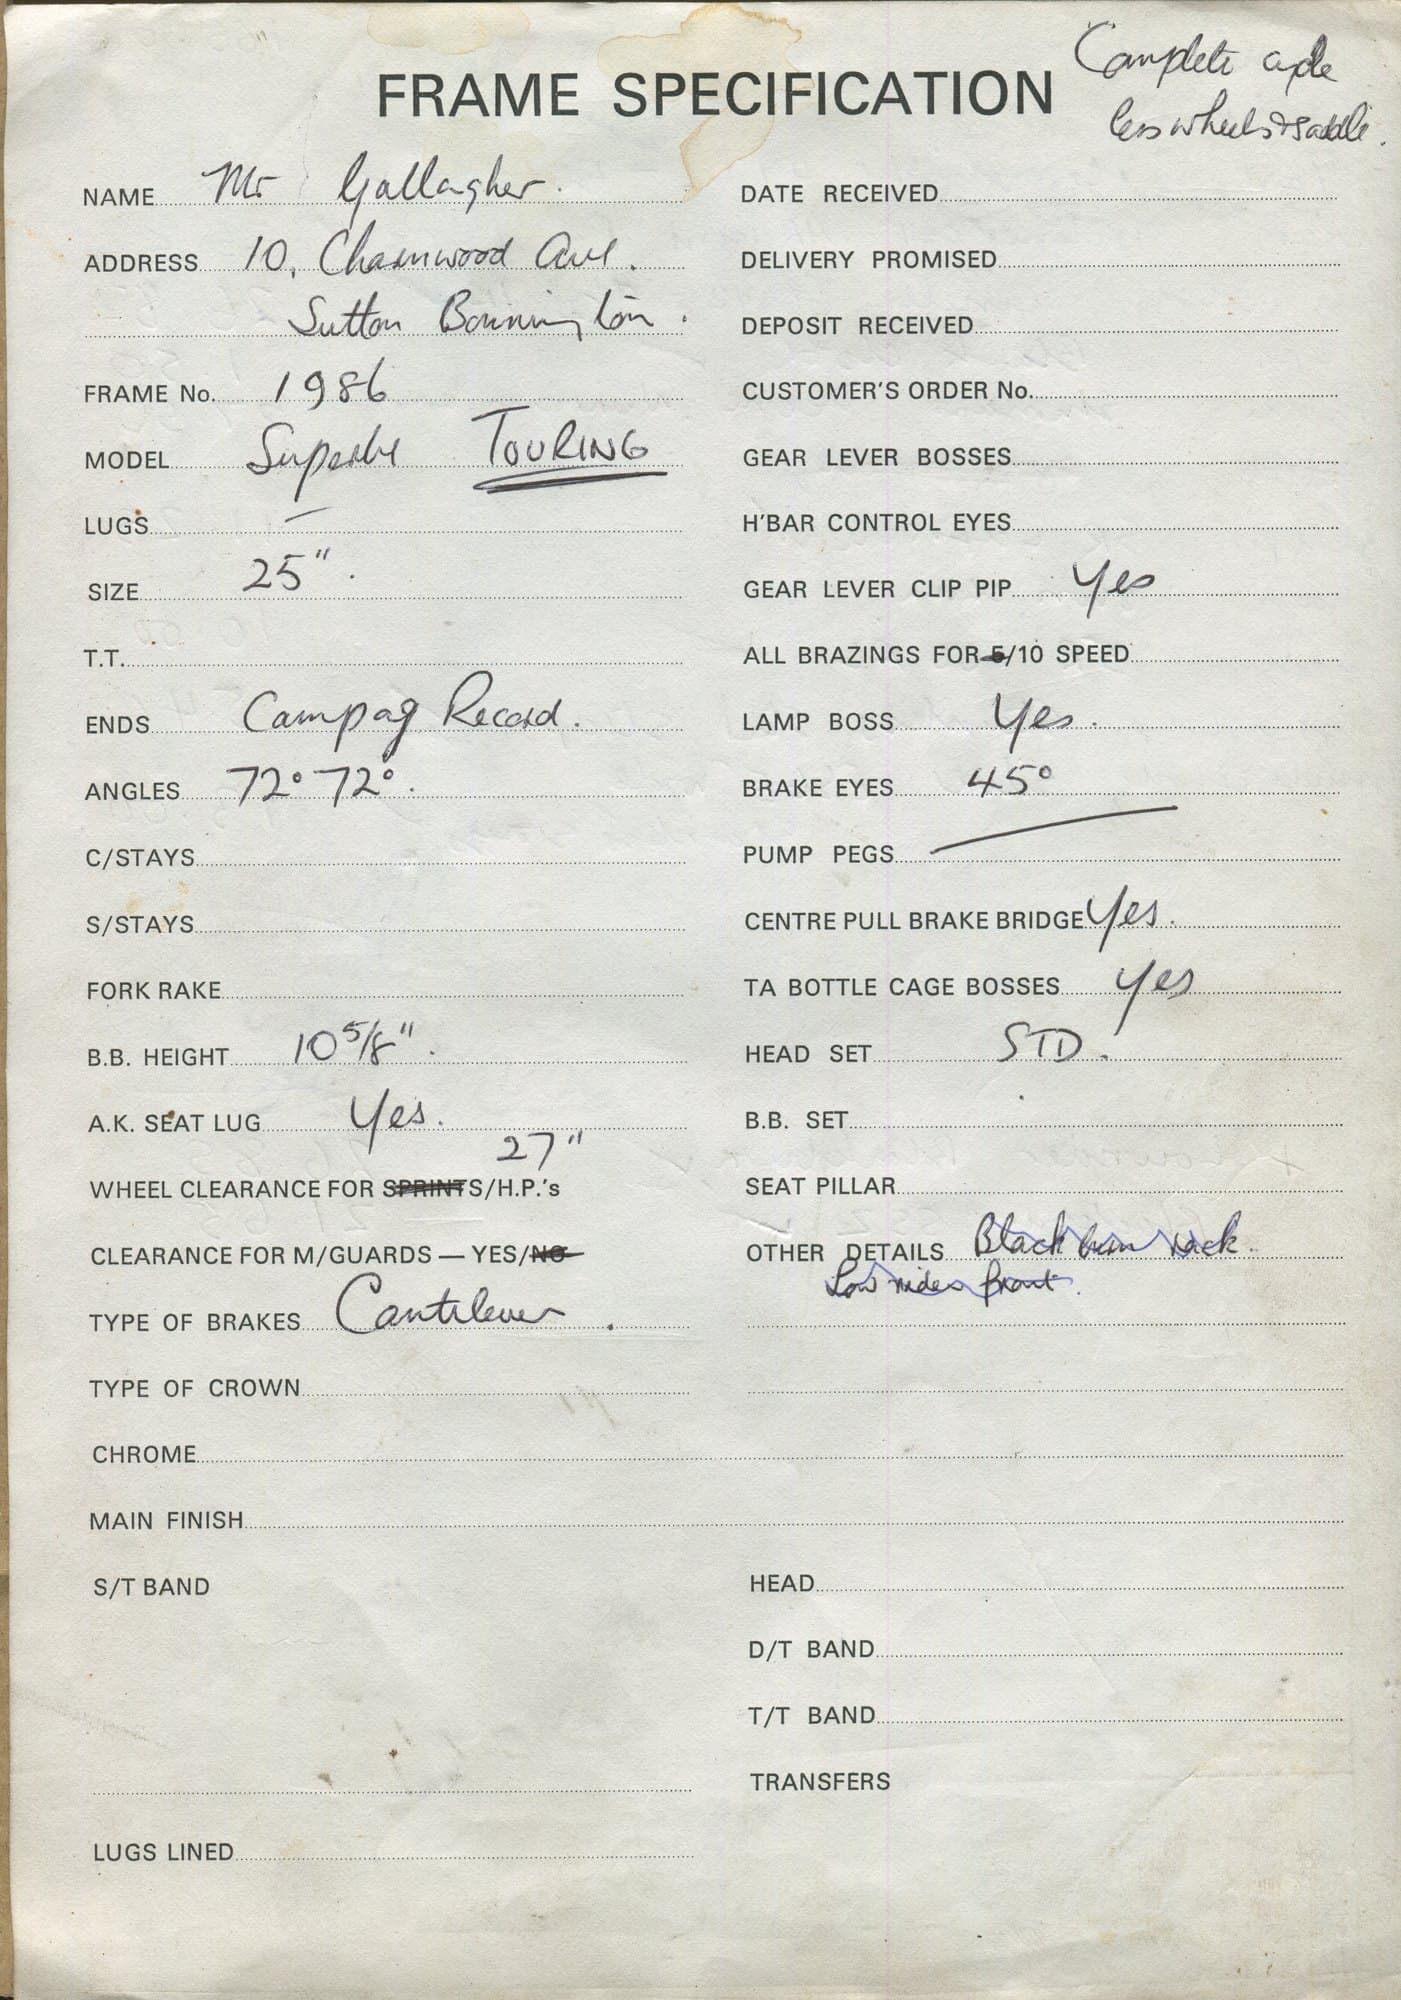 Complete cycle
less wheels & saddle.
FRAME SPECIFICATION
NAME Mr Gallagher.
ADDRESS 10, Charnwood Ave.
Sutton Bonnington.
FRAME No. 1986
MODEL Superbe TOURING
LUGS —
SIZE 25".
T.T.
ENDS Campag Record.
ANGLES 72° 72°.
C/STAYS
S/STAYS
FORK RAKE
B.B. HEIGHT 10 5/8".
A.K. SEAT LUG Yes.
27"
WHEEL CLEARANCE FOR SPRINTS/H.P.'s
CLEARANCE FOR M/GUARDS — YES/NO
TYPE OF BRAKES Cantilever.
TYPE OF CROWN
CHROME
MAIN FINISH
S/T BAND
LUGS LINED
DATE RECEIVED
DELIVERY PROMISED
DEPOSIT RECEIVED
CUSTOMER'S ORDER No.
GEAR LEVER BOSSES
H'BAR CONTROL EYES
GEAR LEVER CLIP PIP Yes
ALL BRAZINGS FOR 5/10 SPEED
LAMP BOSS Yes.
BRAKE EYES 45°
PUMP PEGS
CENTRE PULL BRAKE BRIDGE Yes.
TA BOTTLE CAGE BOSSES Yes
HEAD SET STD.
B.B. SET
SEAT PILLAR
OTHER DETAILS Blackburn rack.
Low rider front.
HEAD
D/T BAND
T/T BAND
TRANSFERS